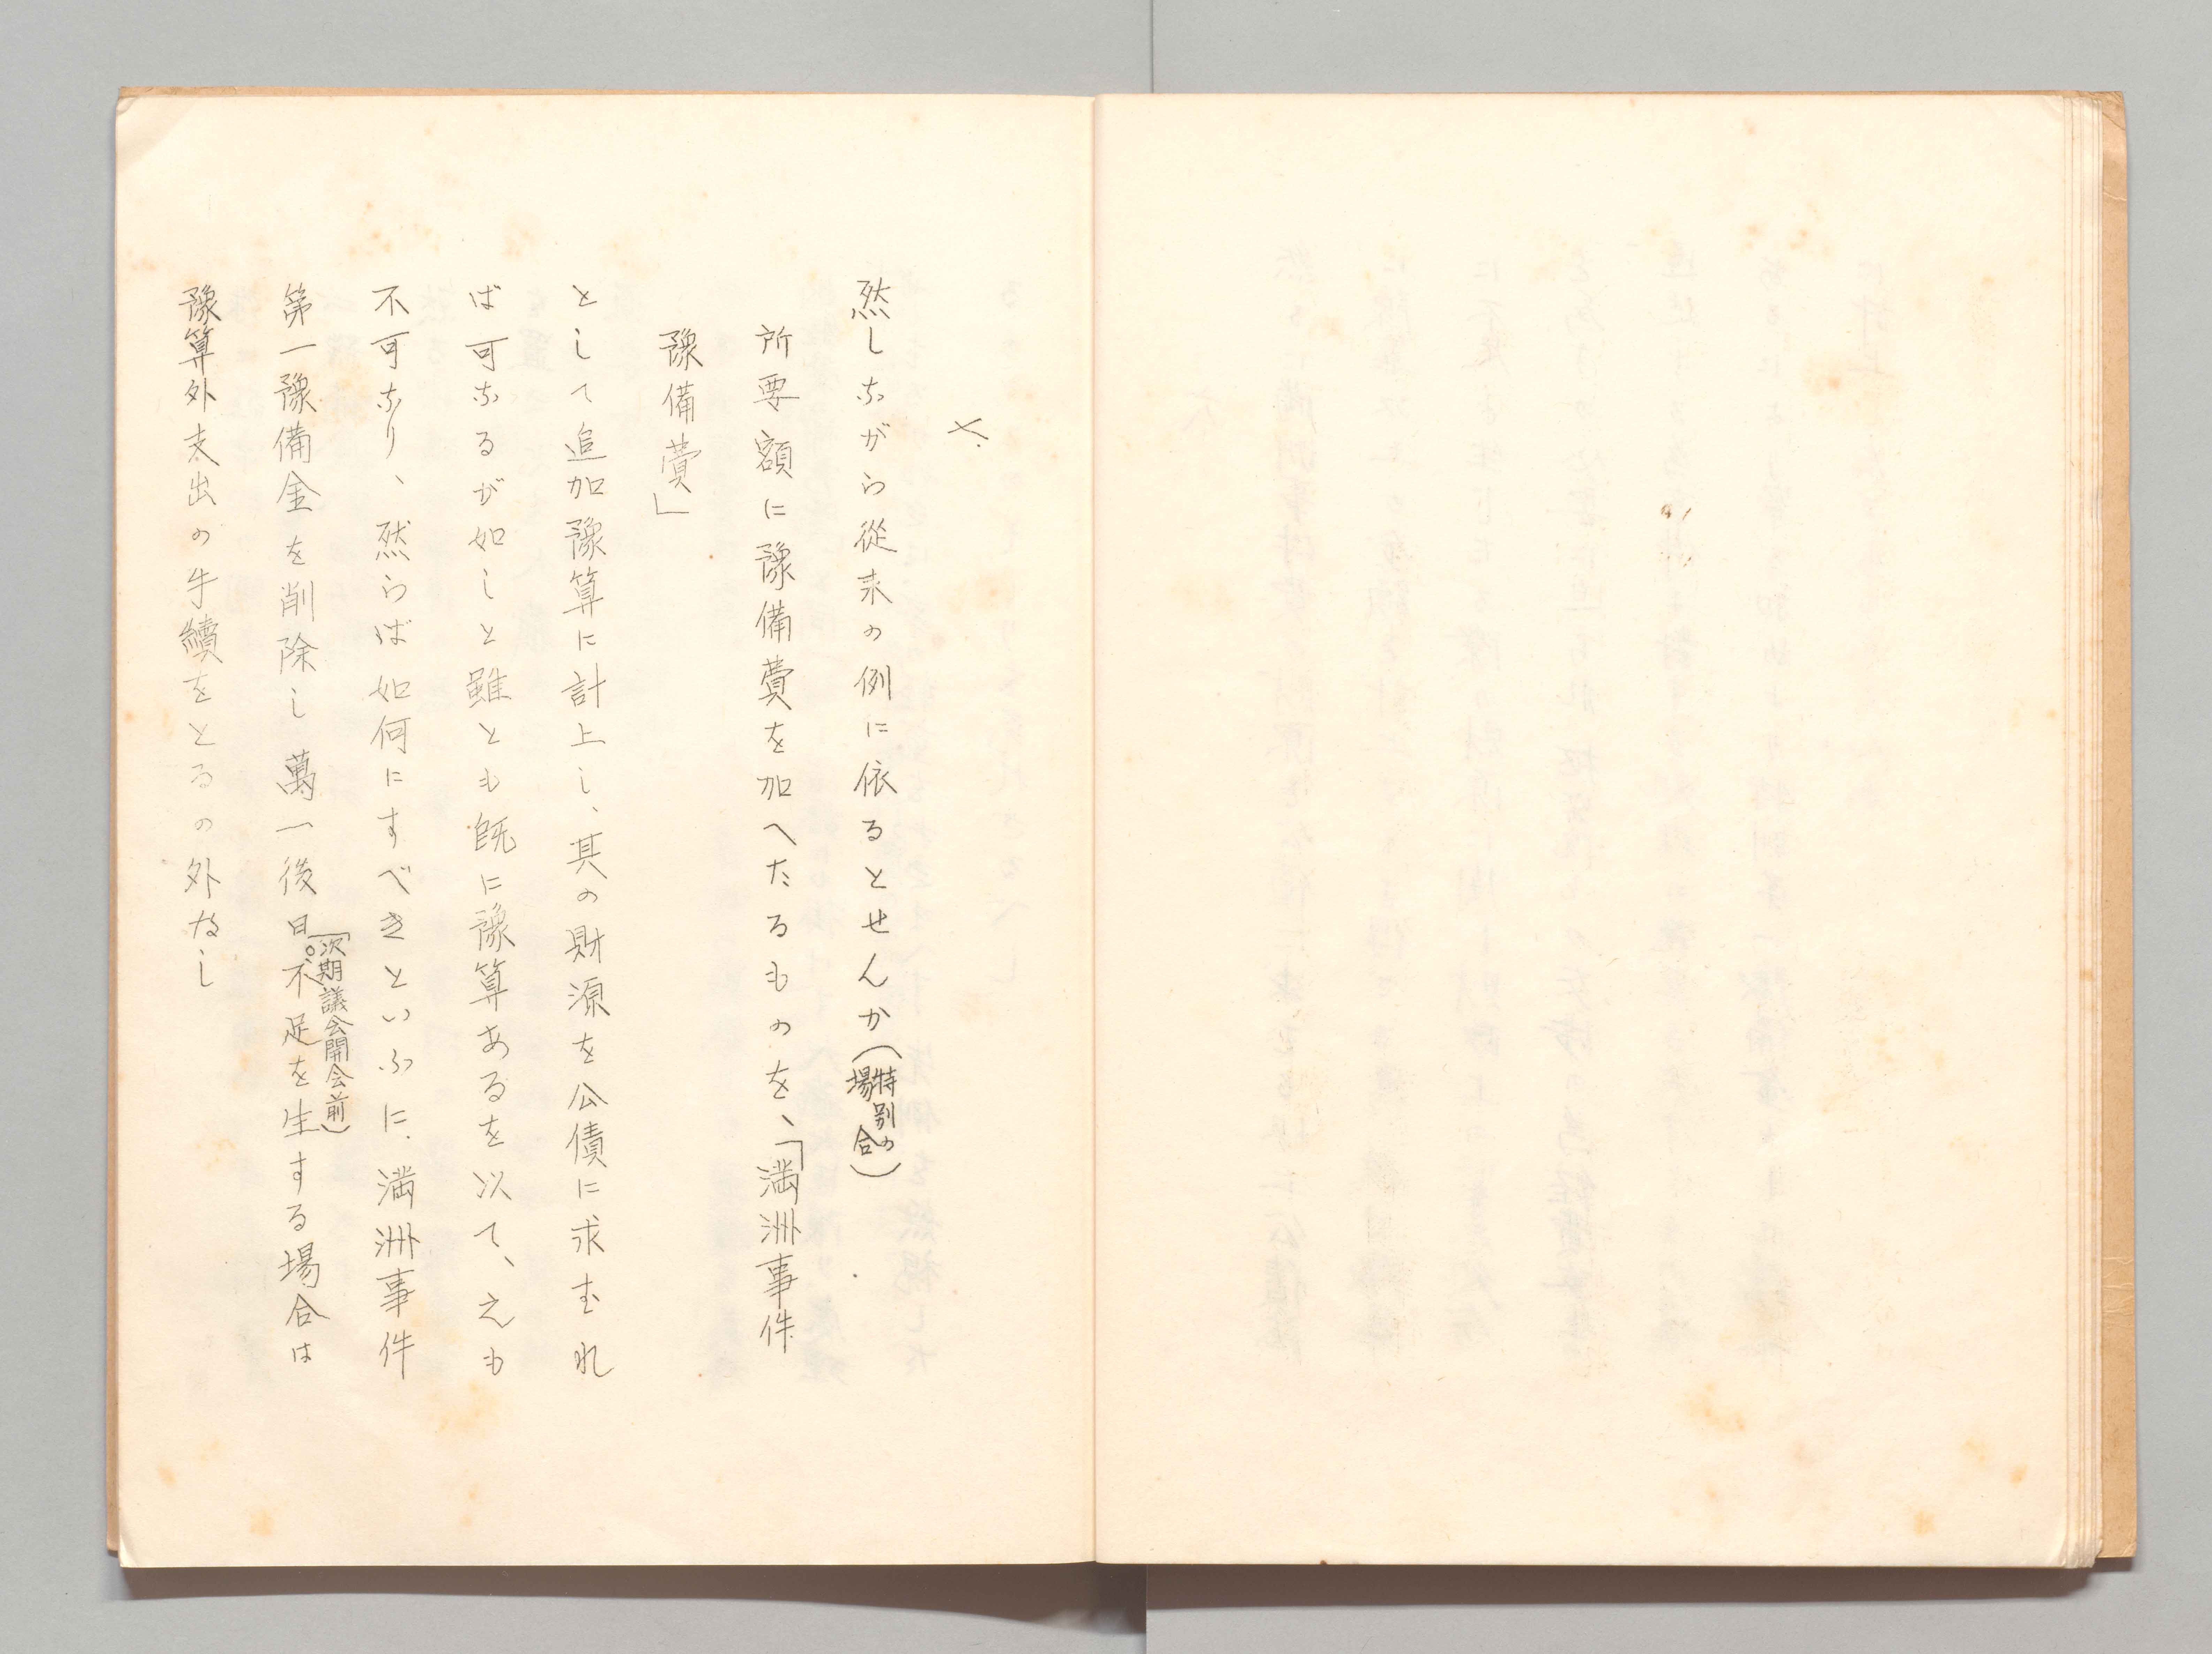 七.
然しながら從来の例に依るとせんか(特別の場合)
所要額に豫備費を加へたるものを、「満洲事件
豫備費」
として追加豫算に計上し、其の財源を公債に求むれ
ば可なるが如しと雖とも既に豫算あるを以て、之も
不可なり、然らば如何にすべきといふに、満洲事件
第一豫備金を削除し萬一後日。不足を生する場合は
(次期議会開会前)
豫算外支出の手續をとるの外なし